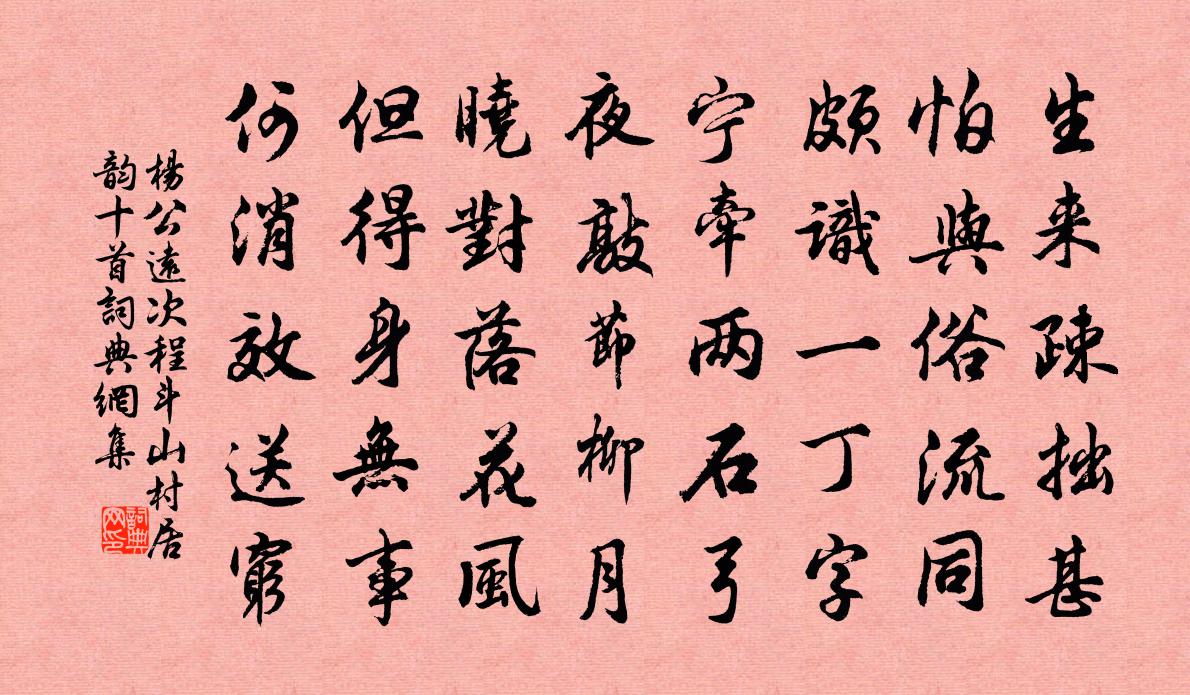 生来疎拙甚
怕與俗流同
頗識一丁字
宁牽两石弓
夜敲茆柳月
曉對落花風
但得身無事
何消效送窮
楊公遠次程斗山村居
韵十首詞典網集
詞典网印